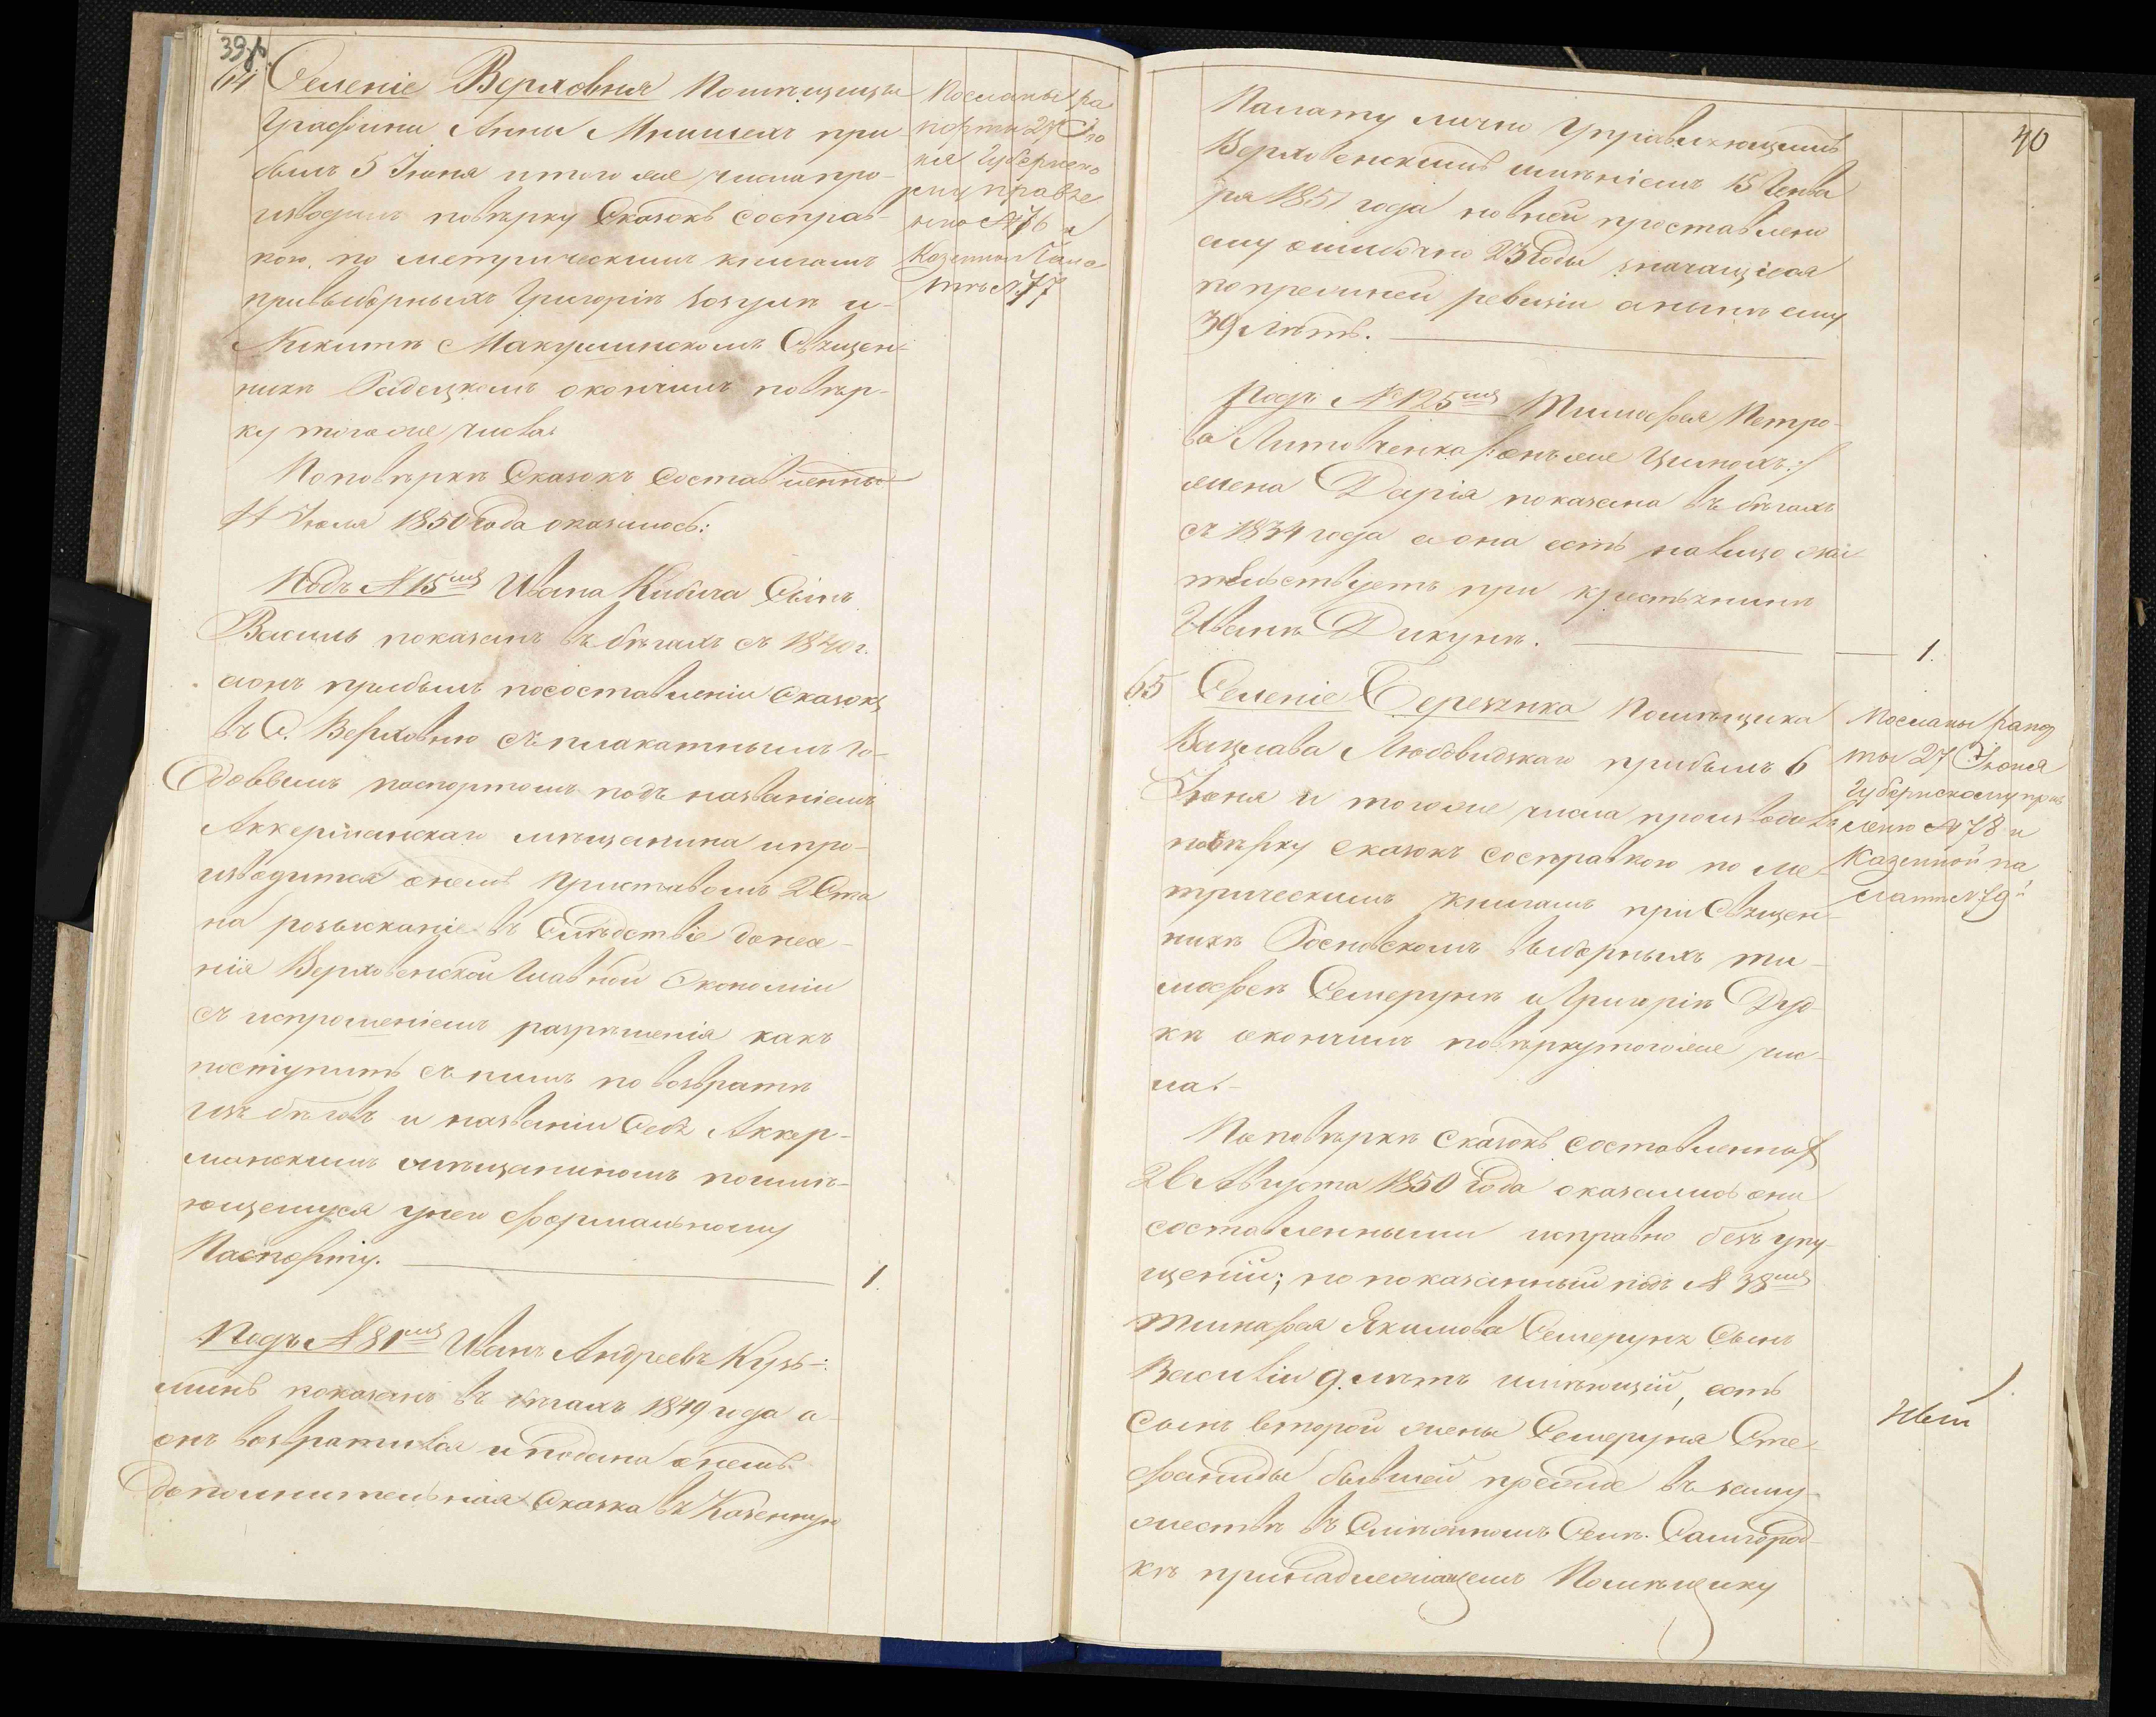 39об
64 Селеніе Верховня Помѣщицы
Графини Анны Мнишехъ при
былъ 5 Іюня итого же числа про-
изводилъ повѣрку Сказокъ сосправ-
кою по метрическимъ книгамъ
привыборныхъ Григоріѣ и
Никитѣ Макушинскомъ Священ-
никѣ окончилъ повѣр-
ку того же числа
Поповѣркѣ Сказокъ Составленны
14 Іюля 1850 Года оказалось:
Подъ №15мъ Ивана Кибича Сынъ
Василь показанъ въ бѣгахъ съ 1840 г.
аонъ прибылъ посоставленіи Сказокъ
въ С. Верховню съ плакатнымъ го-
довымъ паспортомъ подъ названіемъ
Аккерманскаго мѣщанина ипро-
изводится онемъ Приставомъ 2 Ста
на розысканіе въ Слѣдствіе донесе-
нія Верховенской Главной Экономіи
съ испрошеніемъ разрѣшенія какъ
поступить съ нимъ по возвратѣ
изъ бѣговъ и названіи Себя Аккер-
манскимъ мѣщаниномъ поимѣ-
ющемуся унего формальному
Паспорту. 1.
Подъ №81мъ Иванъ Андреевъ Кузь-
минъ показанъ въ бѣгахъ 1849 года а
онъ возвратился иподана онемъ
дополнительная Сказка въ Казенную
Посланы ра
порты 27 Ію
ня Губернско
му правле
нію №76 и
Казенной Пала
тѣ №77
40
Палату лично Управляющимъ
Верховенскимъ имѣніемъ 15 Генва
ря 1851 года новней проставлено
ему ошибочно 23 Года значащіеся
попрежней ревизіи анынѣ ему
39 Лѣтъ.
Подъ №125мъ Тимофея Петро-
ва Литовченка /:онъ же Цимохъ:/
жена Дарія показана въ бѣгахъ
съ 1834 года аона есть налицо жи
тельствуетъ при крестьянинѣ
Иванѣ Дикунѣ. 1.
65 Селеніе Березянка Помѣщика
Вацлава Любовидзкаго прибылъ 6
Іюня и тогоже числа производилъ
повѣрку сказокъ сосправкою по ме-
трическимъ книгамъ при Священ-
никѣ Росновскомъ выборныхъ Ти-
мофеѣ Семерунѣ иГригоріѣ Дуд-
кѣ окончилъ повѣркутогоже чис-
ла.
Поповѣркѣ Сказокъ составленныхъ
26 Августа 1850 Года оказались они
составленными исправно безъ упу-
щеній; но показанный подъ №38мъ
Тимофея Якимова Семеруня Сынъ
Василій 9. лѣтъ имѣющій, есть
сынъ второй жены Семеруня Сте-
фаниды бывшей прежде въ заму-
жествѣ въ Смѣжномъ Селѣ Самгород-
кѣ принадлежащемъ Помѣщику
Посланы рапор
ты 27 Іюня
Губернскому прав
ленію №78 и
Казенной па
латѣ №79й